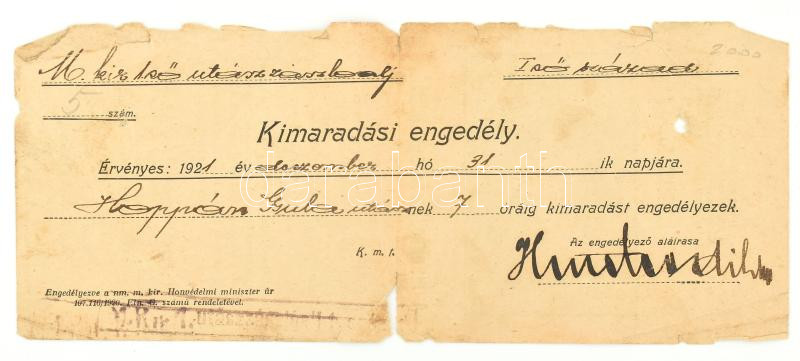 M. kir 1ső utászzászloalj Iső század
2000
5 szám.
Kimaradási engedély.
Érvényes: 1921 év deczember hó 31 ik napjára.
Hoppán Gyula utásznek 7 óráig kimaradást engedélyezek.
Az engedélyező aláirasa
K. m. f.
Engedélyezve a nm. m. kir. Honvédelmi miniszter úr
számú rendeletével.
darabanth